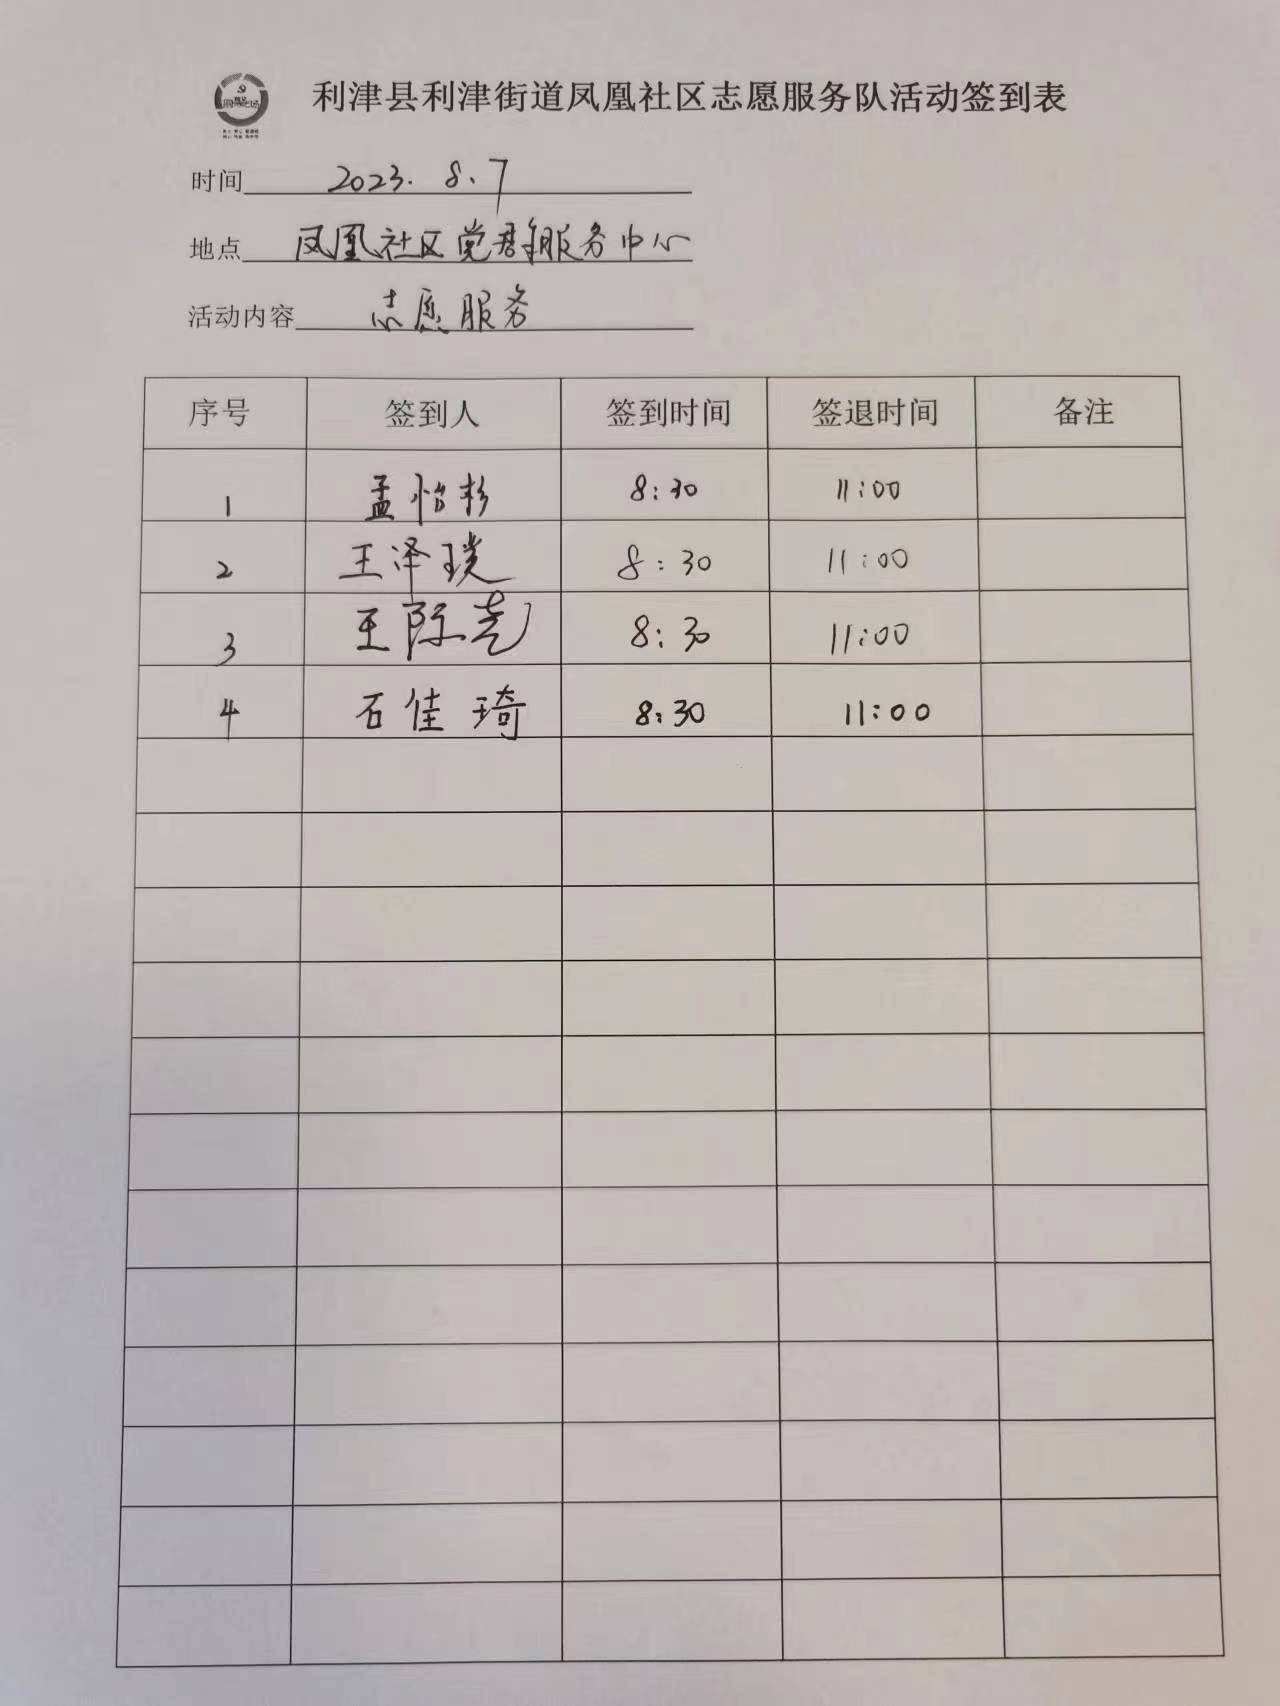 利津县利津街道凤凰社区志愿服务队活动签到表
时间 2023.8.7
地点 凤凰社区党群服务中心
活动内容 志愿服务
序号 签到人 签到时间 签退时间 备注
1 孟怡杉 8:30 11:00
2 王泽璞 8:30 11:00
3 王际尧 8:30 11:00
4 石佳琦 8:30 11:00